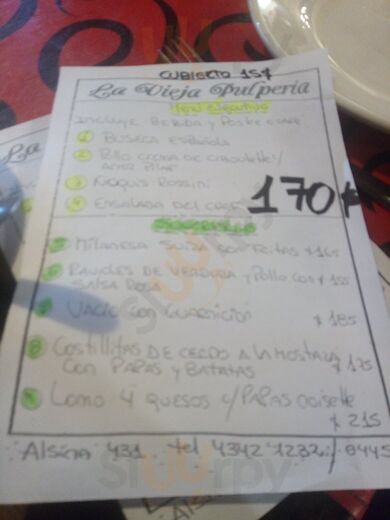 CUBIERTO 15$
La Vieja Pulperia
Menu Ejecutivo
Incluye Bebida y Postre o cafe
1 Buseca Española
2 Pollo crema de ciboulette/
Arroz Pilaf
3 Ñoquis Rossini
4 Ensalada del chef
170$
5 Milanesa Suiza con fritas $165
6 Ravioles de verdura y Pollo con $155
Salsa Rosa
Vacio con guarnición
$ 185
8 Costillitas de cerdo a la mostaza
con PAPAS y BATATAS $175
Lomo 4 quesos c/PAPAS noisette
$ 215
Alsina 431. tel 4342 1232 / 8445
La
Alsin
sluurpy